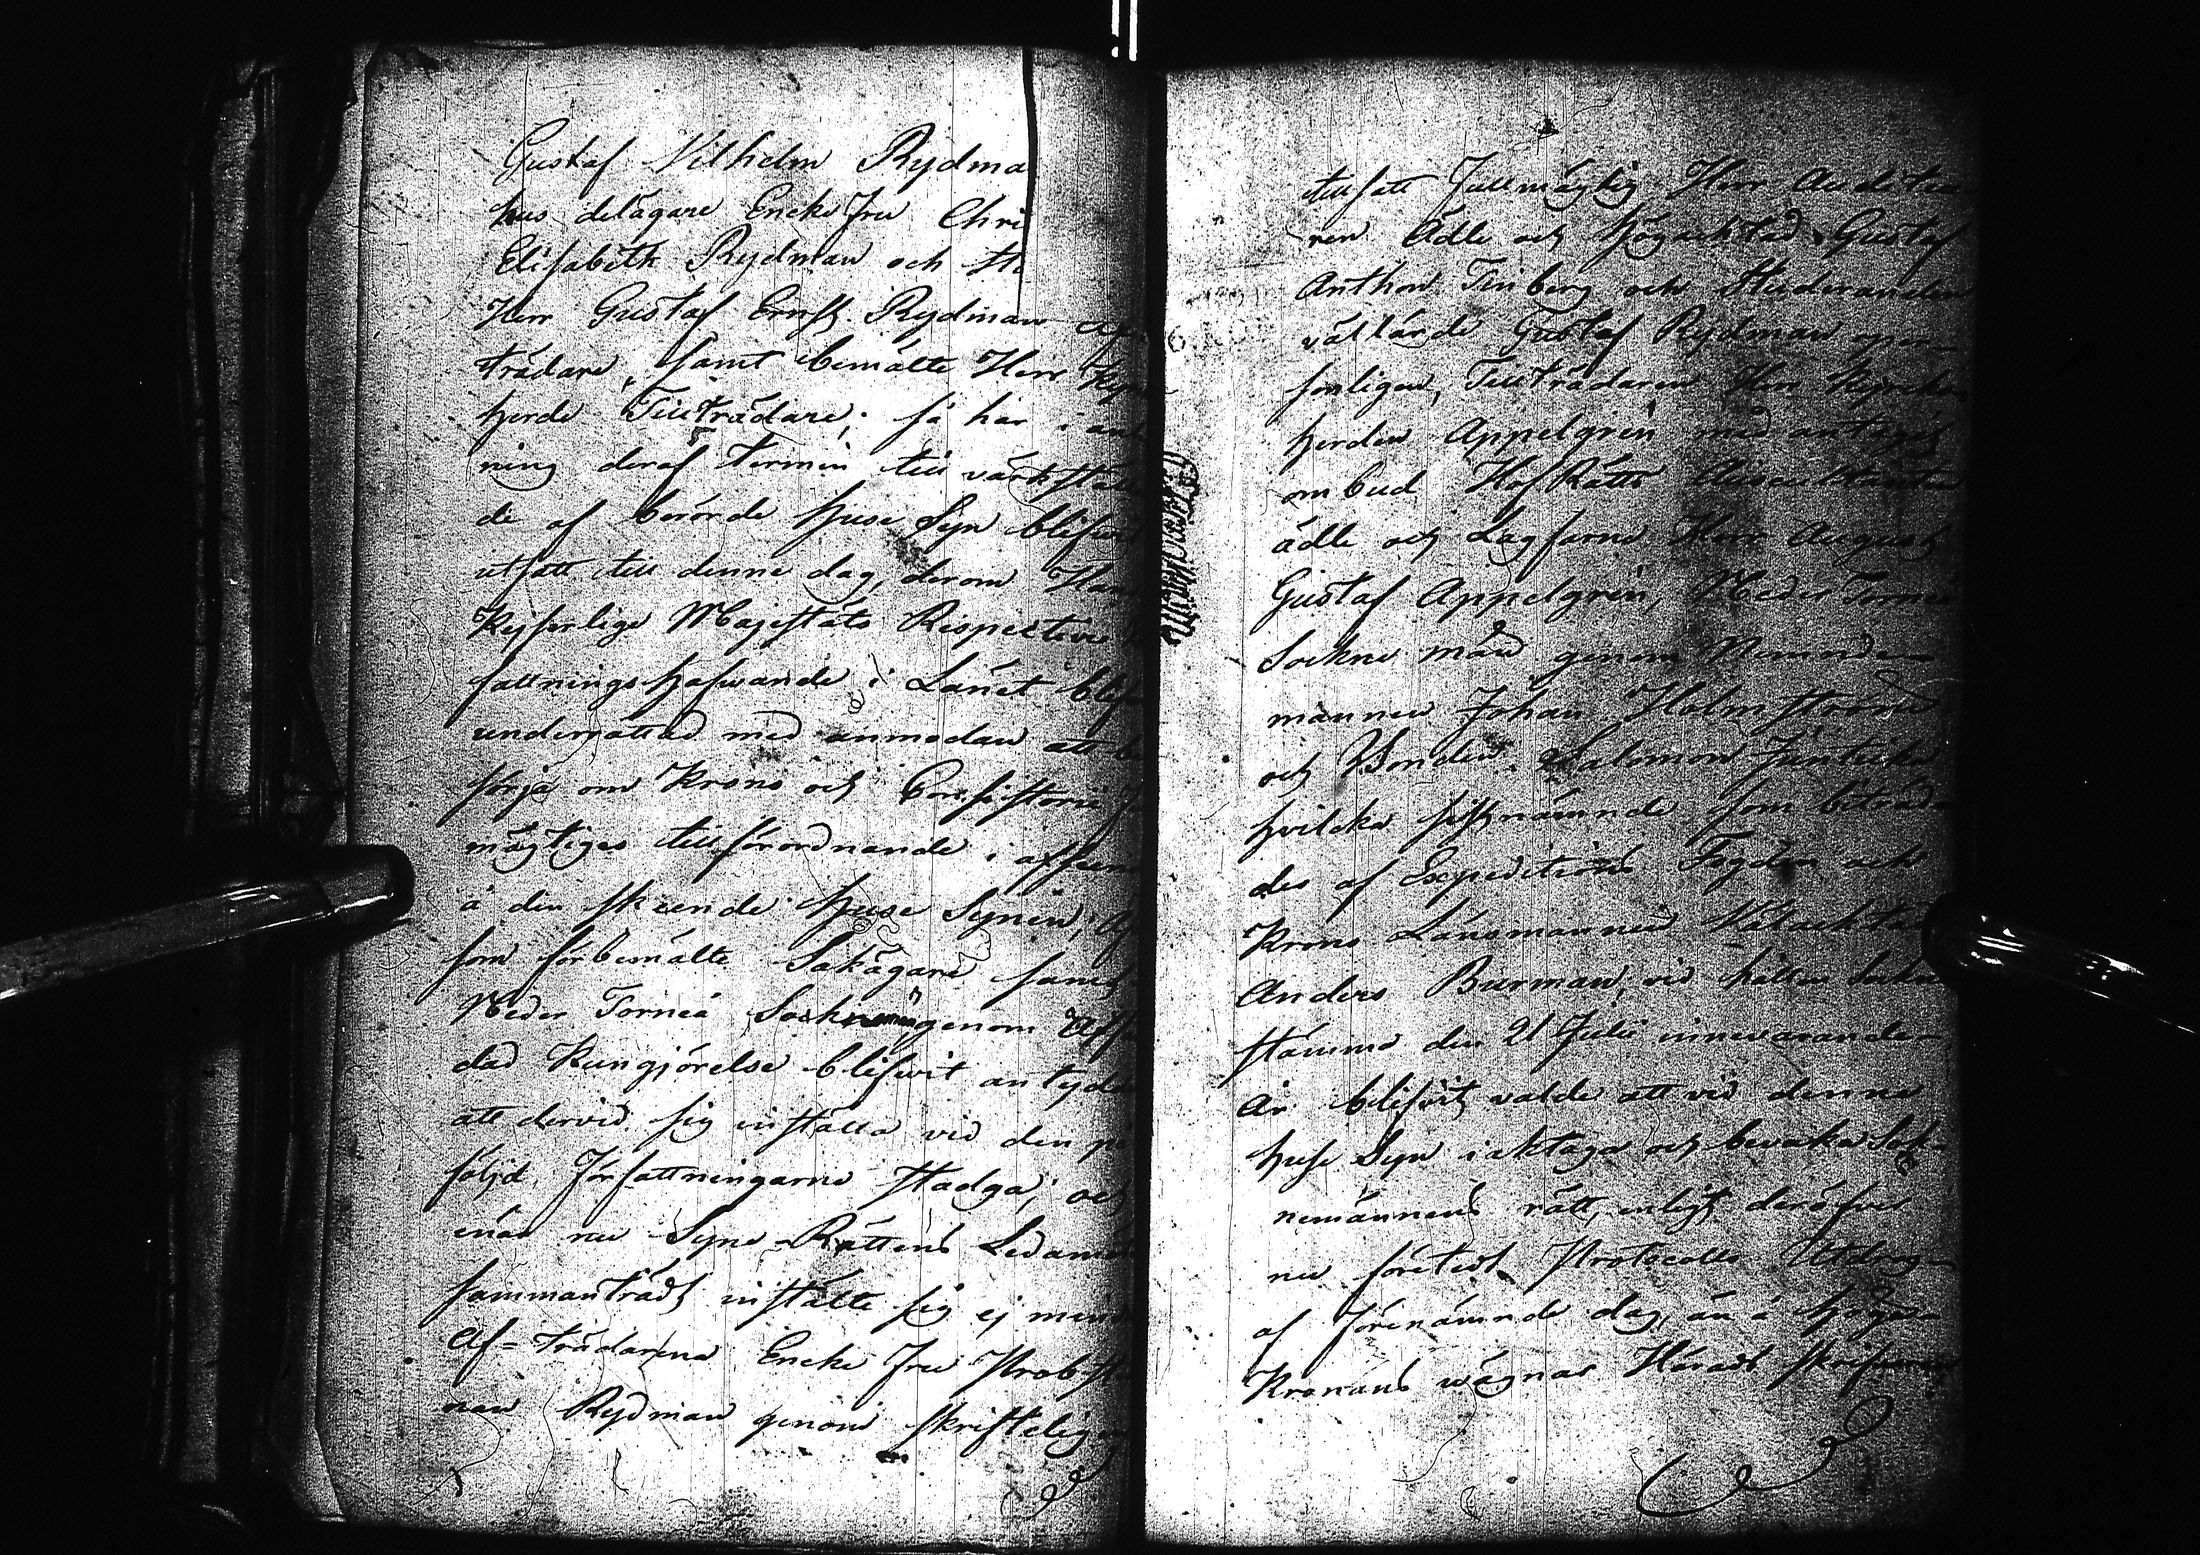 Gustaf Vilhelm Rydma
hus delägare Encke Fru Chri
Elisabeth Rydman och
Herr Gustaf Ernst Rydman af
trädare, samt bemälte Herr Kyr
herde Tillträdare; så har i an
ning deraf termin till värkstäl
de af berörde Huse Syn blifvit
utsatt till denne dag, derom
Kejserlige Majestäts Respective
fattningshafwande i Länet blif
underrättad med anmodan att be
sörja om Krono och Consistorii
mägtiges tillförordnande, af
å den skeende Huse Synen;
som förbemälte Sakägare samt
Neder Torneå genom
dad Kungjörelse blifwit antyde
att dervid sig inställa vid den
följd, Författningarne stadga; och
enär nu Syne-Rättens Ledamö
sammanträdt inställte sig ej min
Af=trädarena Encke Fru Probst
nan Rydman genom skriftelig
tillsatt Fullmägtig Herr Auditeu-
ren Ädle och Högachtad Gustaf
Anthon Tinberg och Studeranden
vällärde Gustaf Rydman
sonligen, Tillträdaren Herr Kyrcko
herden Appelgrén med antaget
ombud HofRätts Auscultanten
ädle och Lagfarne Herr August
Gustaf Appelgrén, Neder Torneå
Sockne män genom Nemnde-
mannen Johan Holmström
och Bonden Salomon
hvilcka sistnämnde som biträd-
des af Expeditions Fogden och
Krono Länsmannen Välachtad
Anders Burman, vid hållen Sockne
stämma den 21 Julii innewarande
År blifvit valde att vid denne
huse Syn iakttaga och bevaka Sok-
nemännens rätt, enligt deröfver
nu företedt Protocolls Utdrag
af förenämnde dag, än å höga
Kronans wägnar Härads skrifvaren